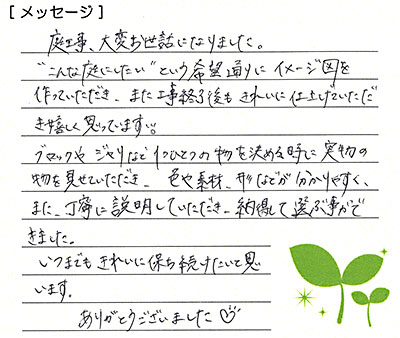 [メッセージ]
庭工事、大変お世話になりました。
"こんな庭にしたい"という希望通りに イメージ図を
作っていただき、また工事終了後も きれいに仕上げていただ
き嬉しく思っています。
ブロックや ジャリなど 1つひとつの物を決める時に 実物の
物を見せていただき、色や素材、形などが分かりやすく、
また、丁寧に説明していただき、納得して選ぶ事がで
きました。
いつまでもきれいに保ち続けたいと思
います。
ありがとうございました♡